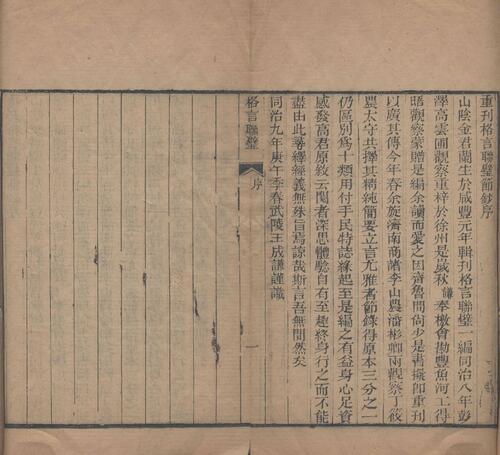 重刊格言聯璧節鈔序
山陰金君蘭生於咸豐元年輯刊格言聯璧一編同治八年彭
澤高雲圃觀察重梓於徐州是歲秋謙奉檄會勘豐魚河工得
晤觀察蒙贈是編余讀而愛之因齊魯間尚少是書擬卽重刊
以廣其傳今年春余旋濟南商諸李山農潘彬卿兩觀察丁筱
農太守共擇其精純簡要立言尤雅者節錄得原本三分之一
仍區別爲十類用付手民特誌緣起至是編之有益身心足資
感發高君原敘云閱者深思體驗自有至趣終身行之而不能
盡由此尋繹經義無殊旨焉諒哉斯言吾無閒然矣
同治九年庚午季春武陵王成謙謹識
格言聯璧
序
一